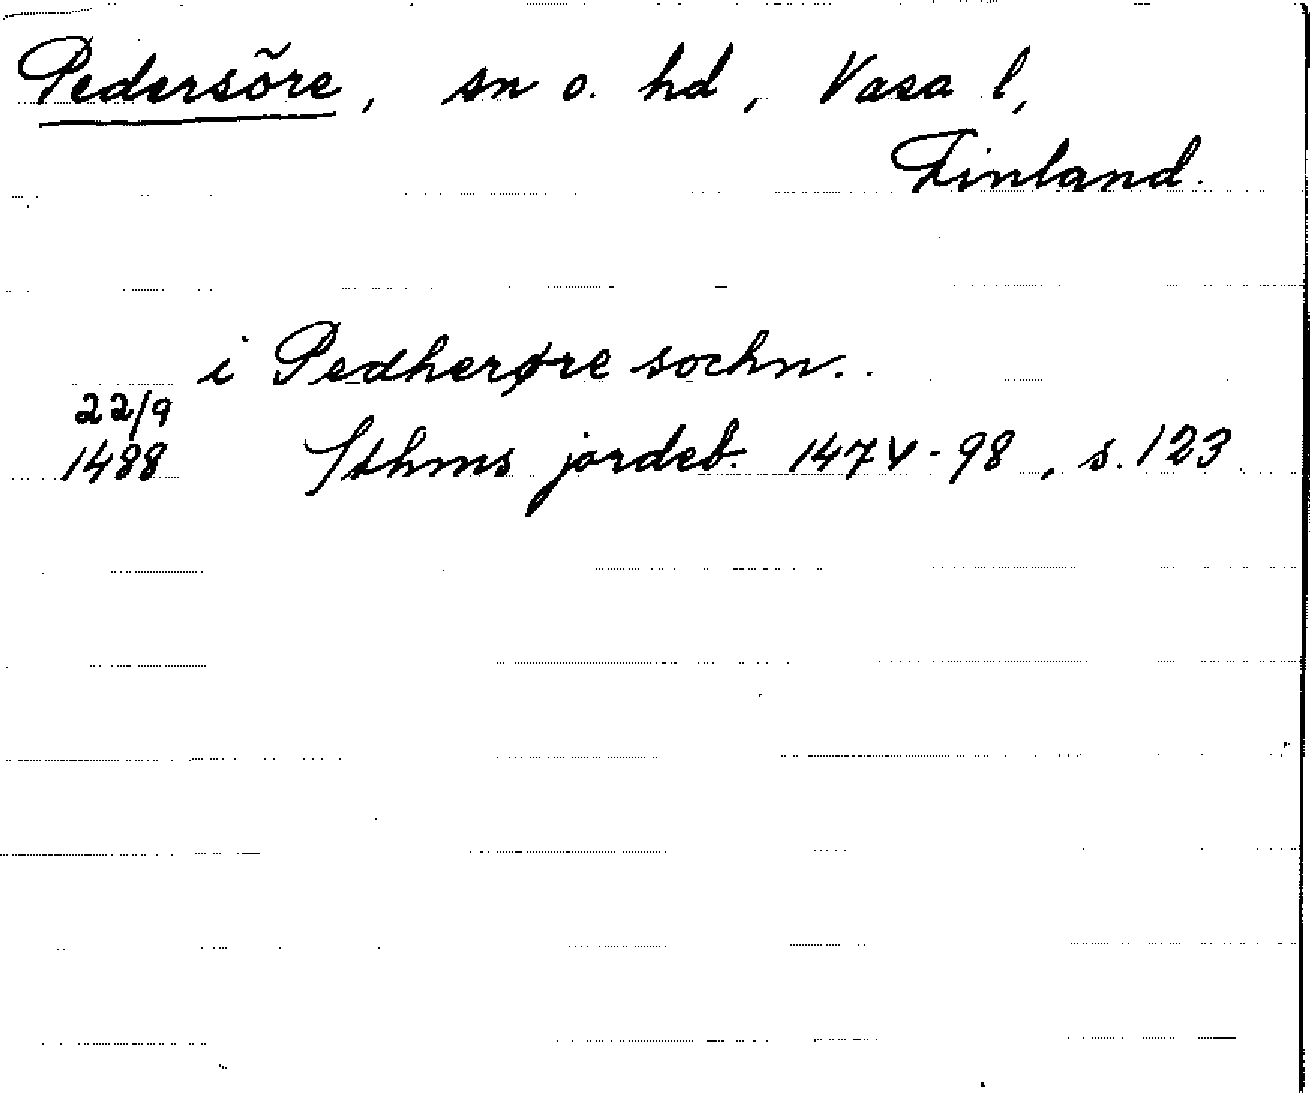 Pedersöre, sn o. hd, Vasa l,
Finland.
i Pedherøre sochn..
22/9
1488 Sthms jordeb. 1474-98, s. 123